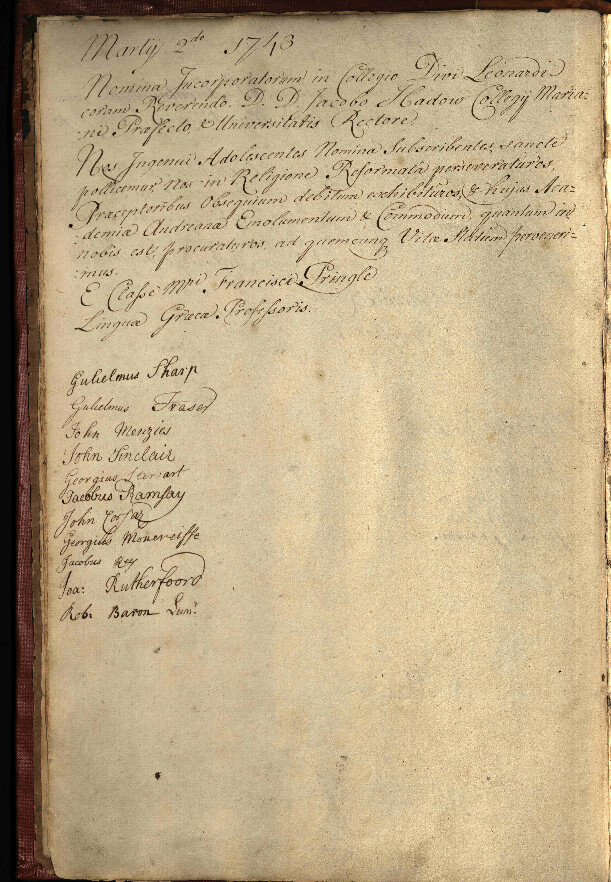 Martij 2do 1743
Nomina Incorporatorum in Collegio Divi Leonardi
coram Reverendo D. D. Jacobo Hadow Collegij Maria-
-ni Præfecto & Universitatis Rectore
Nos Ingenui Adolescentes Nomina Subscribentes, sancte
pollicemur, Nos in Religione Reformata perseveraturos,
Præceptoribus Obsequium debitum exhibituros, & hujus Aca-
-demiæ Andreanæ Emolumentum & Commodum, quantum in
nobis est, procuraturos, ad quemcunq Vitæ Statum perveneri-
-mus.
E Classe Mri Francisci Pringle
Linguæ Græcæ Professoris.
Gulielmus Sharp
Gulielmus Fraser
John Menzies
John Sinclair
Georgius Stewart
Jacobus Ramsay
John Corsar
Georgius Moncreiffe
Jacobus Key
Joa: Rutherfoord
Rob. Baron Junr